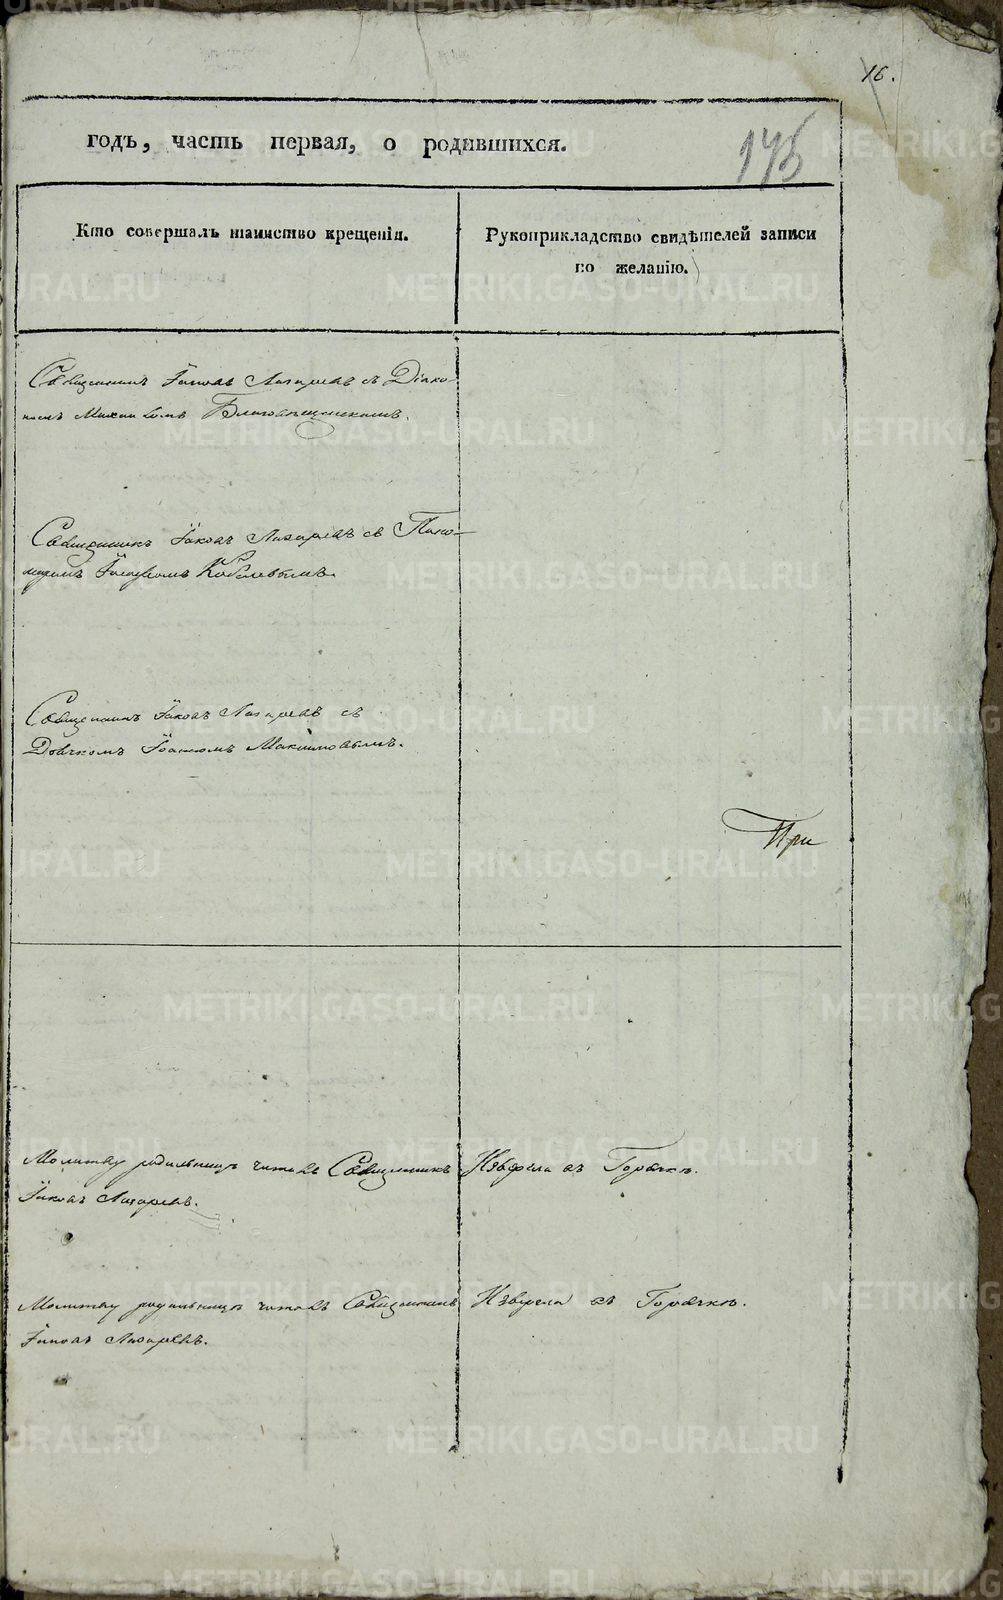 16.
175
годъ, часть первая, о родившихся.
Кто совершалъ таинство крещенія.
Рукоприкладство свидѣтелей записи
по желанію.
Священникъ Іаковъ Лазаревъ съ Діако-
номъ Михаиломъ Благовѣщенскимъ.
Священникъ Іаковъ Лазаревъ съ Поно-
маремъ Кобелевымъ.
Священникъ Іаковъ Лазаревъ съ
Дьячкомъ Іоанномъ Максимовымъ.
При
Молитву родильницѣ читалъ Священникъ
Іаковъ Лазаревъ.
въ Горячкѣ.
Молитву родильницѣ читалъ Священникъ
Іаковъ Лазаревъ.
въ Горячкѣ.
METRIKI.GASO-URAL.RU